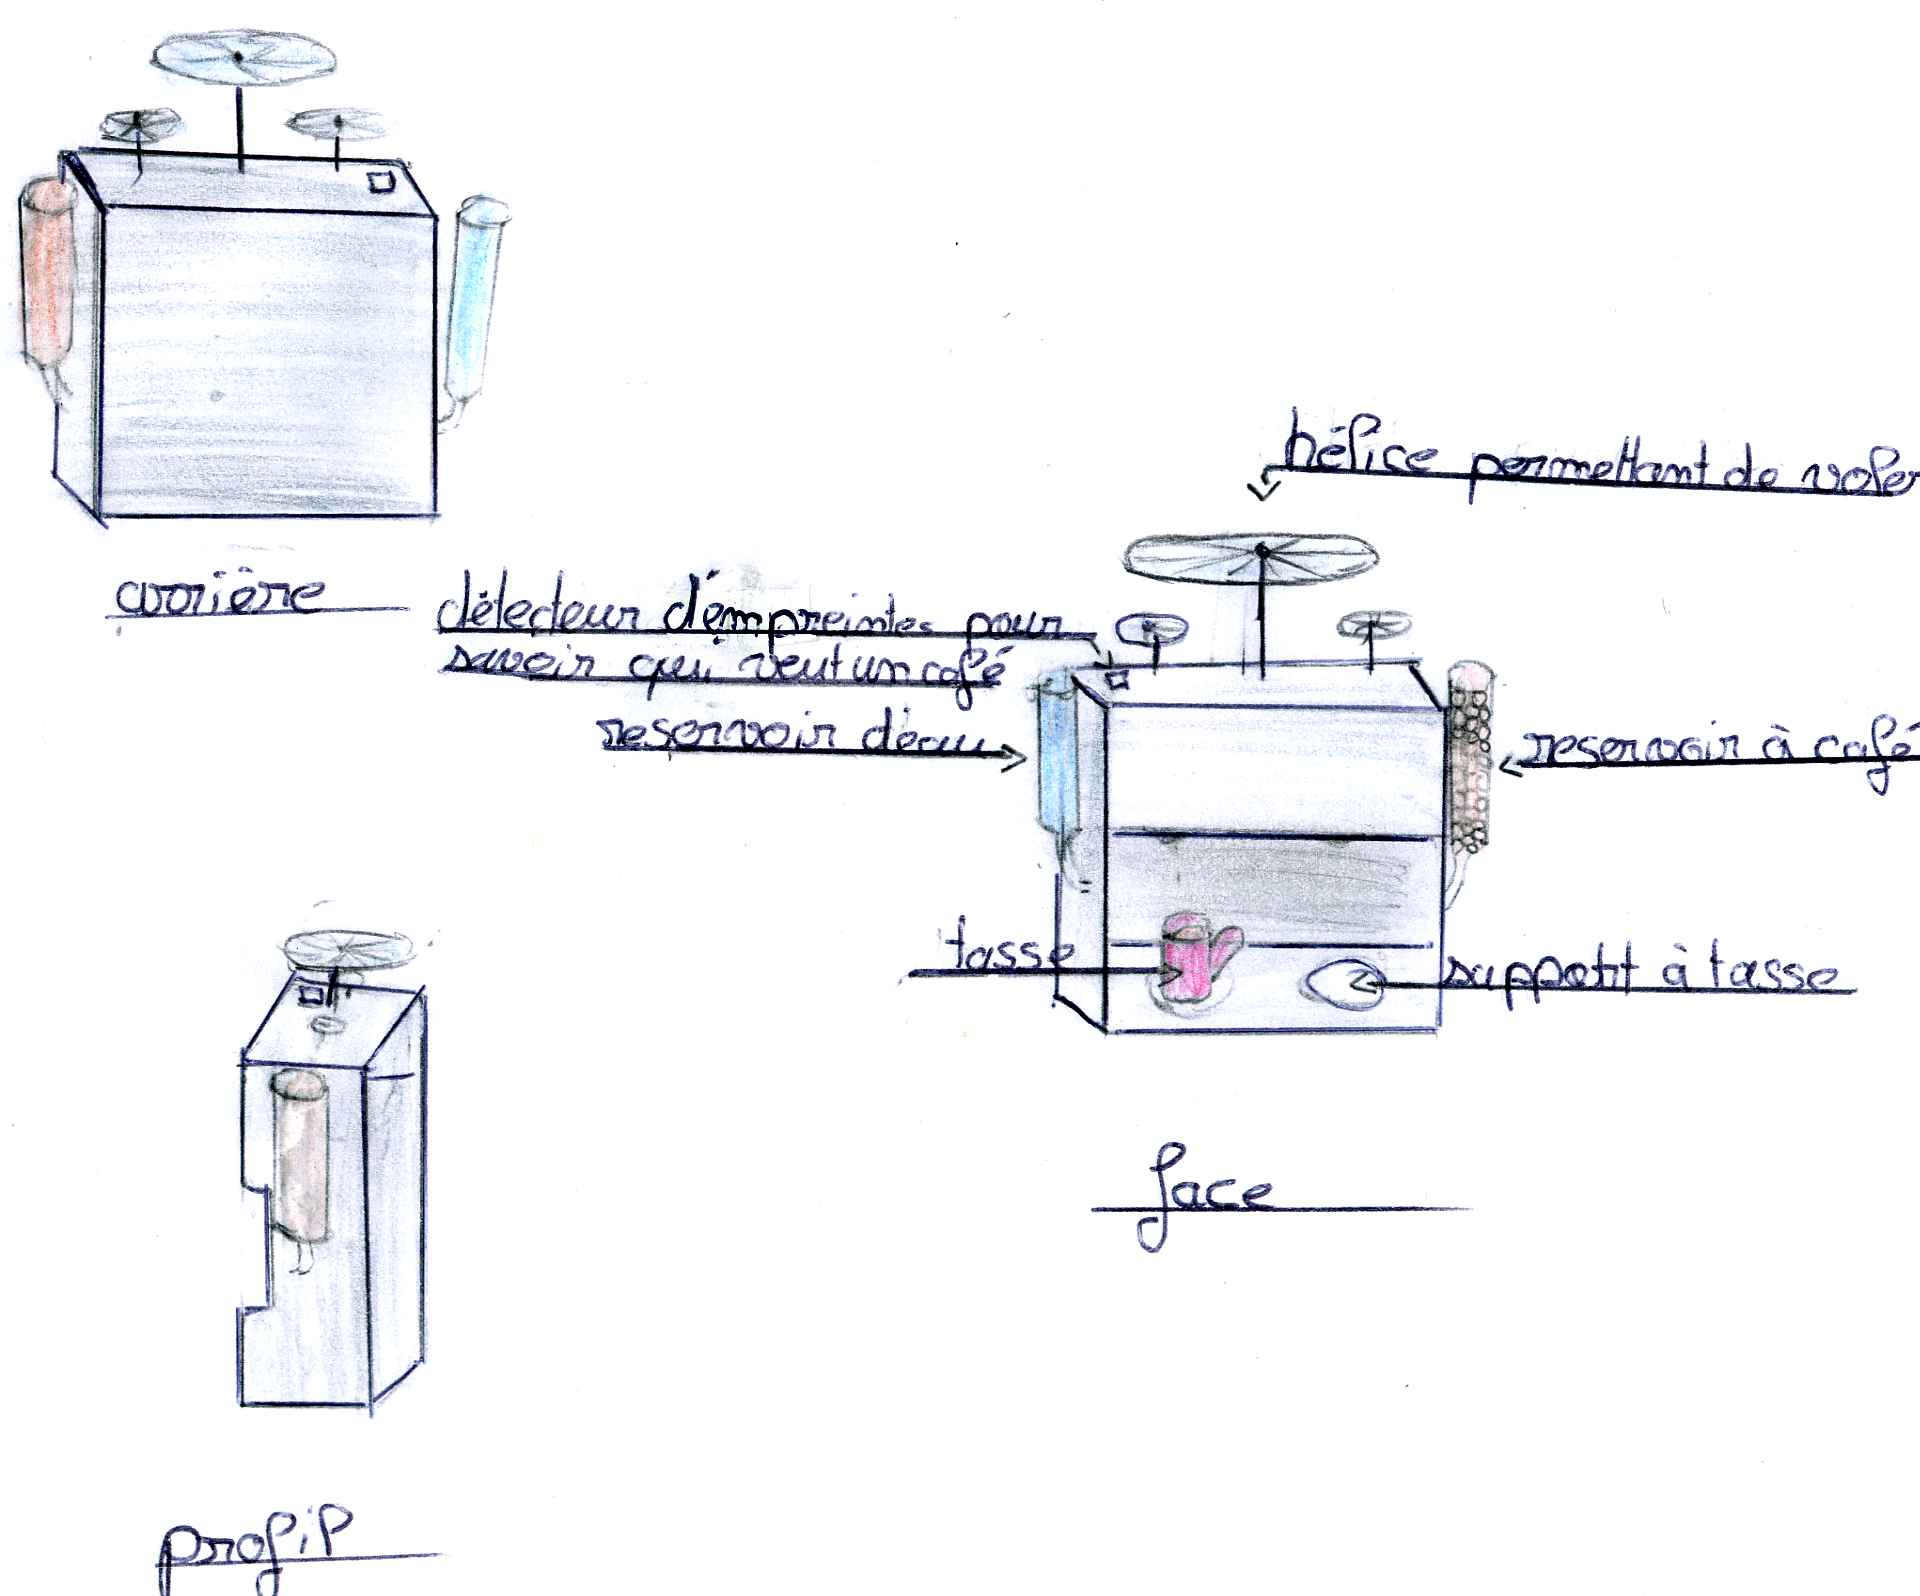 hélice permettant de voler
arrière
détecteur d'empreintes pour
savoir qui veut un café
reservoir d'eau
reservoir à café
tasse
support à tasse
face
profil